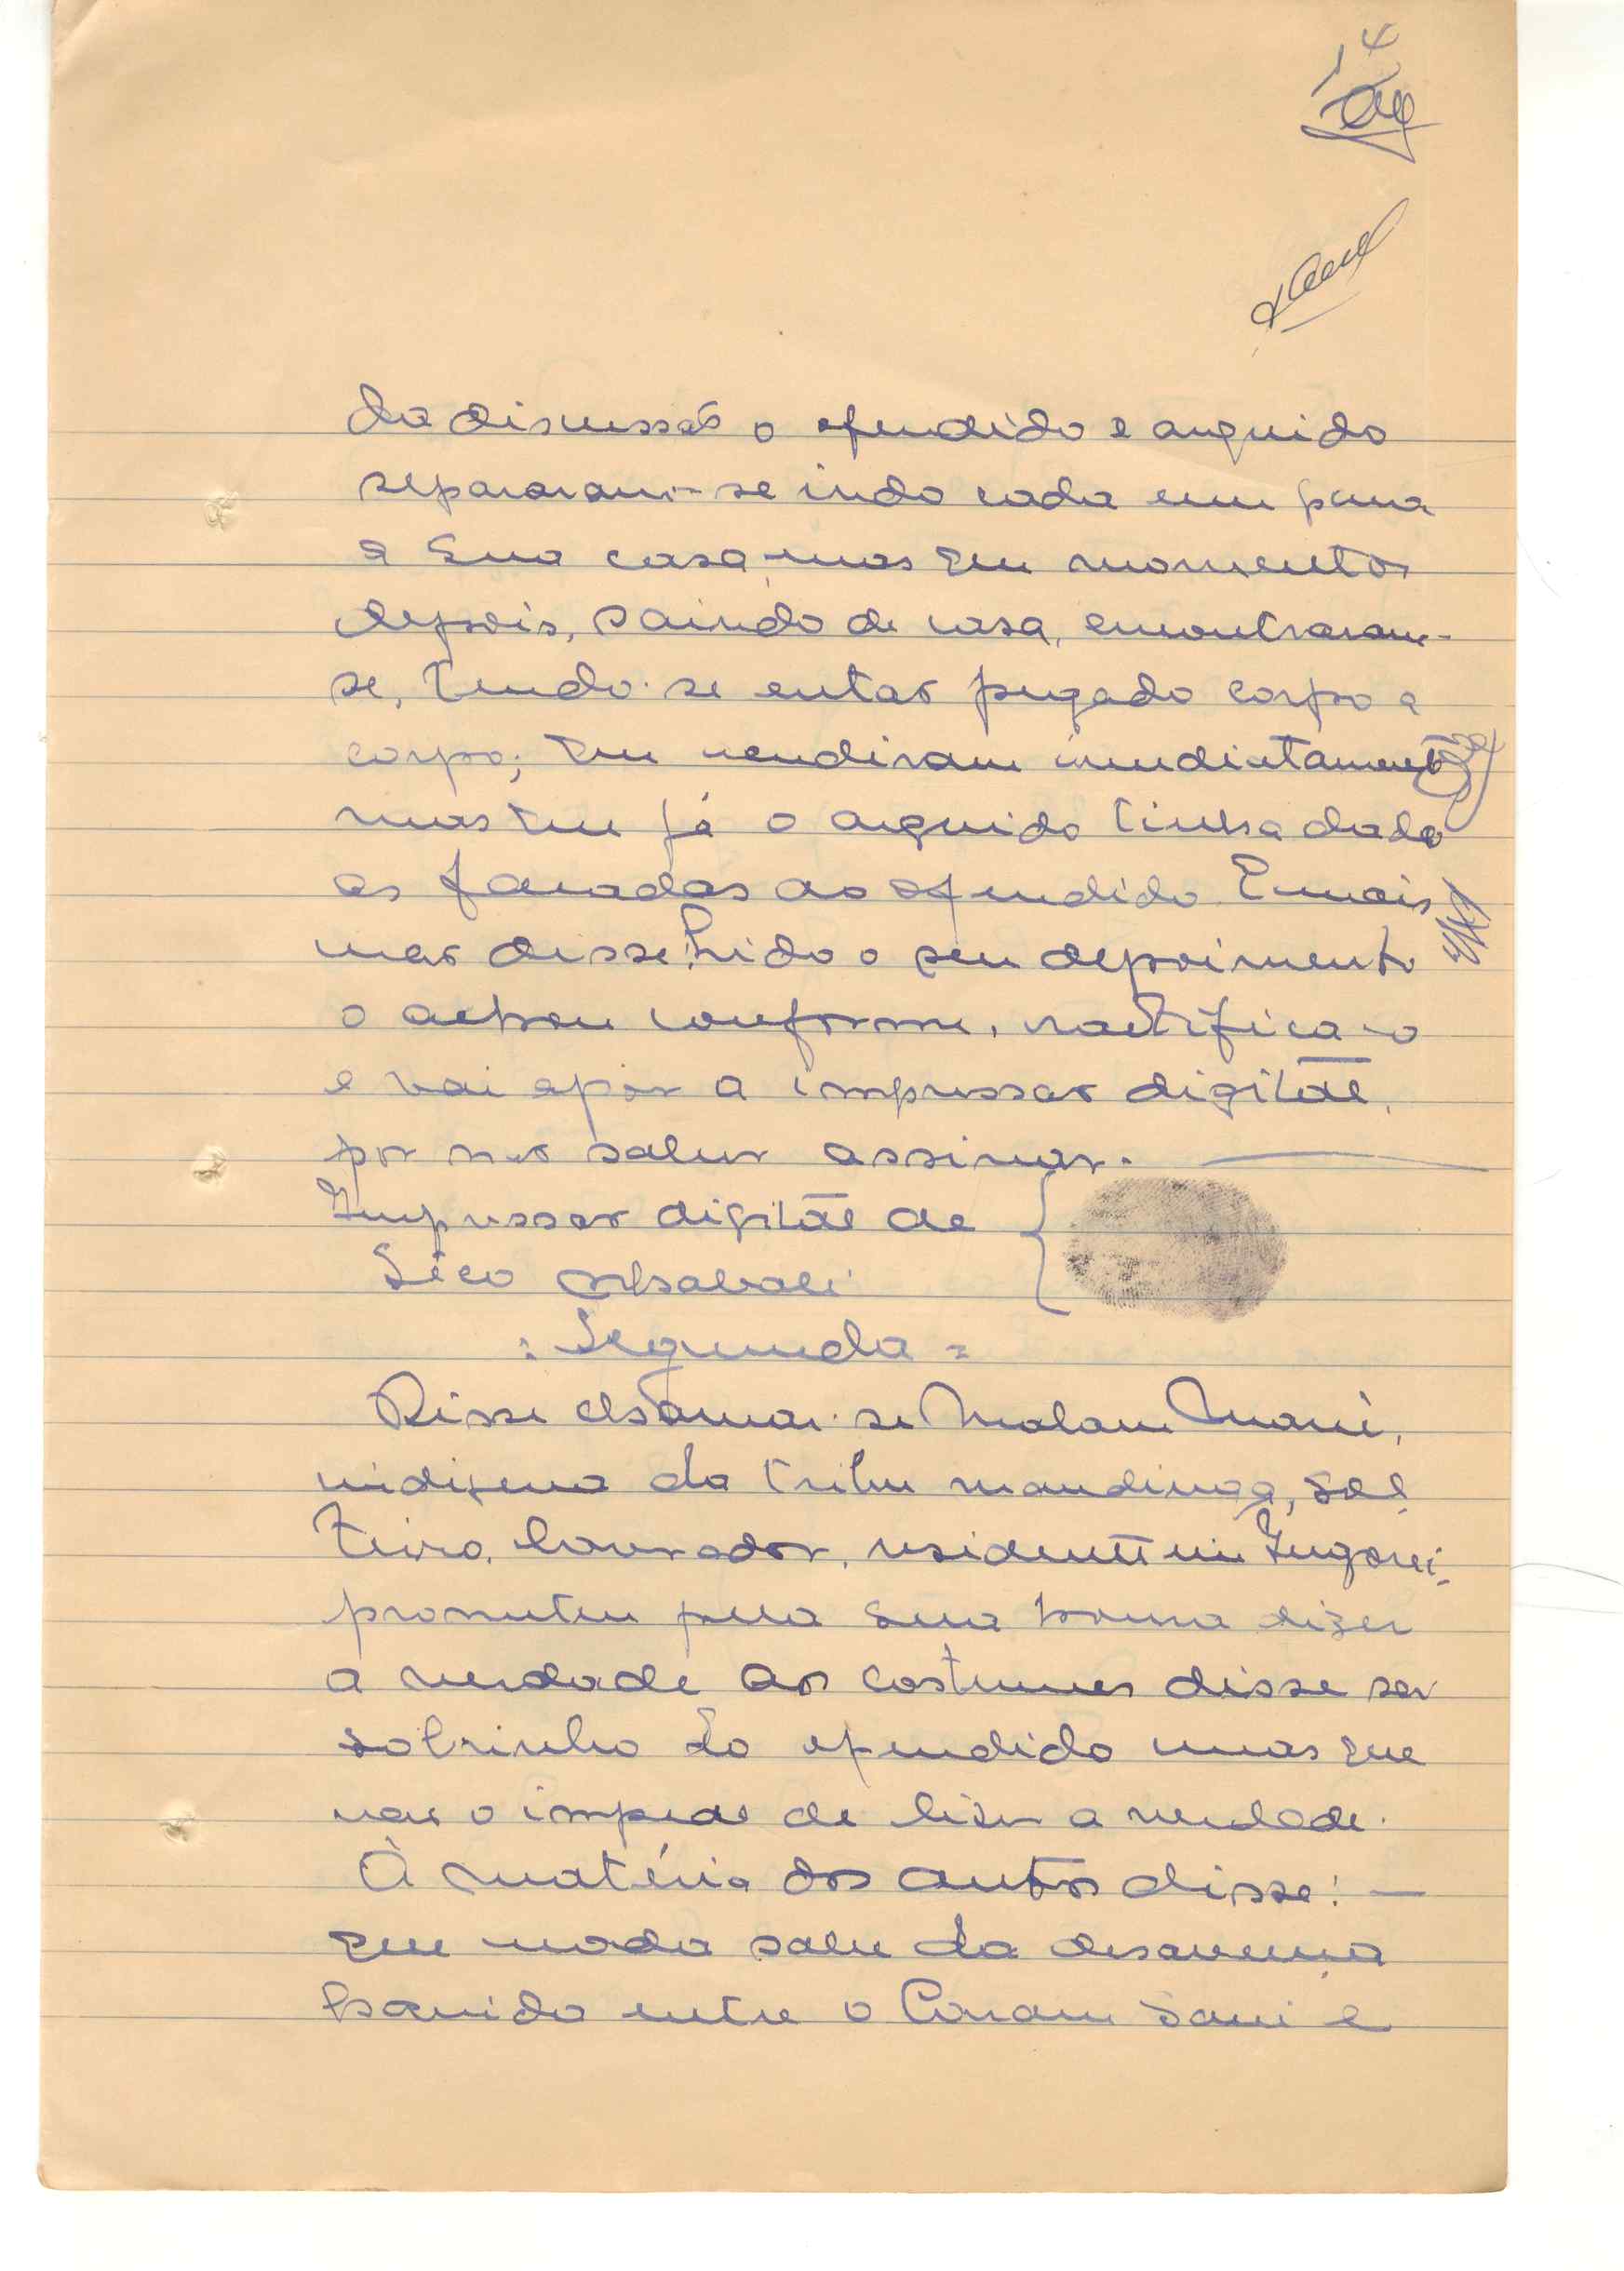 14
da discussão o ofendido e arguido
separaram-se indo cada um para
a sua casa, mas que momentos
depois, saindo de casa, encontraram-
se, tendo-se entao pegado corpo a
corpo; que acudiram imediatamente
mas que já o arguido tinha dado
as facadas ao ofendido. E mais
nao disse. Lido o seu depoimento
o achou conforme, ractifica-o
e vai apôr a impressao digital,
por nao saber assinar.
Impressao digital de
Seco
= Segunda =
Disse chamar-se Malam Mané,
indigena da tribu mandinga, sol-
teiro, lavrador, residente em
prometeu pela sua honra dizer
a verdade aos costumes disse ser
sobrinho do ofendido mas que
nao o impede de dizer a verdade.
À matéria dos autos disse: —
que nada sabe da desavença
havida entre o Sani e